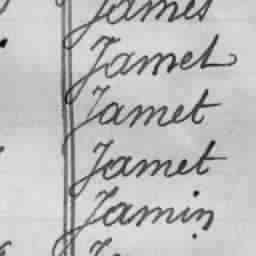 James
Jamet
Jamet
Jamet
Jamin